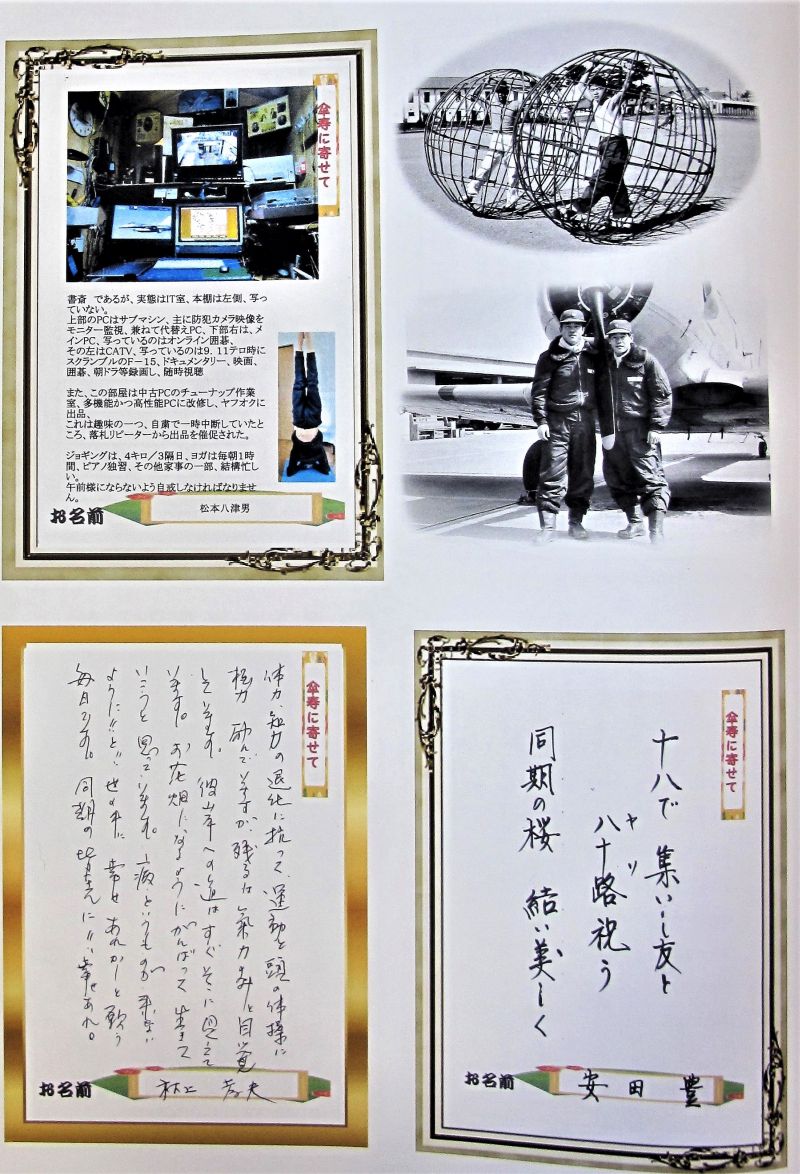 傘寿に寄せて
書斎　であるが、実態はIT室、本棚は左側、写っ
ていない。
上部のPCはサブマシン、主に防犯カメラ映像を
モニター監視、兼ねて代替えPC、下部右は、メ
インPC、写っているのはオンライン囲碁、
その左はCATV、写っているのは9．11テロ時に
スクランブルのF－15、ドキュメンタリー、映画、
囲碁、朝ドラ等録画し、随時視聴
また、この部屋は中古PCのチューナップ作業
室、多機能かつ高性能PCに改修し、ヤフオクに
出品、
これは趣味の一つ、自粛で一時中断していたと
ころ、落札リピーターから出品を催促された。
ジョギングは、4キロ／3隔日、ヨガは毎朝1時
間、ピアノ独習、その他家事の一部、結構忙し
い。
午前様にならないよう自戒しなければなりませ
ん。
お名前
松本八津男
傘寿に寄せて
体力、知力の退化に抗って、運動と頭の体操に
極力励んでいますが、残るは気力のみと自覚
しています。彼岸への道はすぐそこに見えて
います。お花畑になるようにがんばって生きて
いこうと思っています。病というものが来ない
ように!!と世の中に幸せあれかしと願う
毎日です。同期の皆さんに!!幸せあれ。
お名前
村上 孝夫
傘寿に寄せて
十八で 集いし友と
ヤソ
八十路祝う
同期の桜 結い美しく
お名前
安田 豊